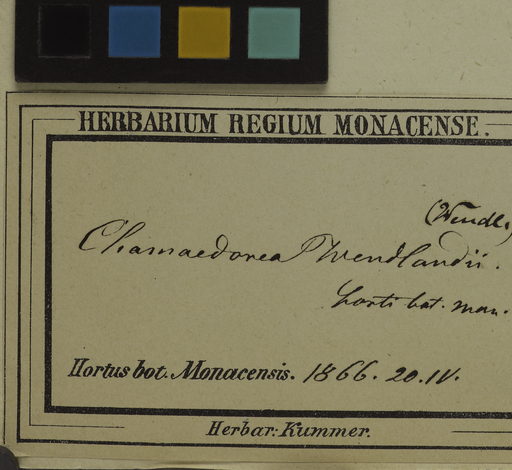 HERBARIUM REGIUM MONACENSE.
(Wendl.)
Chamaedorea Wendlandii.
horti bot. mon.
Hortus bot. Monacensis. 1866. 20. IV.
Herbar: Kummer.